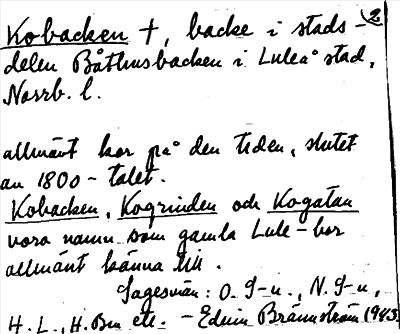 Kobacken †, backe i stads- 2
delen Båthusbacken i Luleå stad,
Norrb. l.
allmänt kor på den tiden, slutet
av 1800-talet.
Kobacken, Kogrinden och Kogatan
voro namn som gamla Lule-bor
allmänt känna till.
Sagesmän: O. G-n., N. G-n,
H. L., H. Bm etc. - Edvin Brännström 1943.